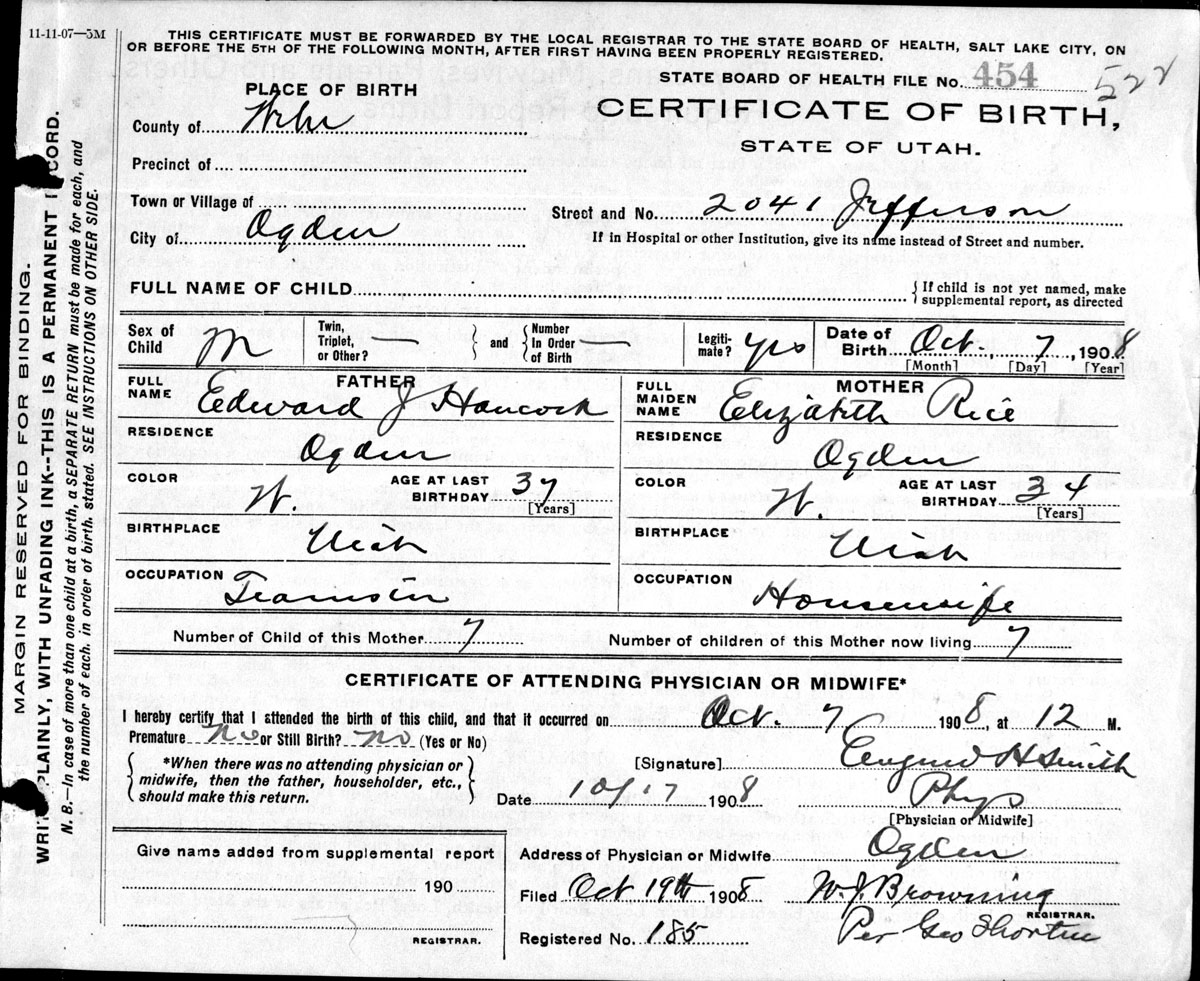 11-11-07—5M
THIS CERTIFICATE MUST BE FORWARDED BY THE LOCAL REGISTRAR TO THE STATE BOARD OF HEALTH, SALT LAKE CITY, ON
OR BEFORE THE 5TH OF THE FOLLOWING MONTH, AFTER FIRST HAVING BEEN PROPERLY REGISTERED.
STATE BOARD OF HEALTH FILE No. 454 522
PLACE OF BIRTH
CERTIFICATE OF BIRTH,
STATE OF UTAH.
County of
Precinct of
Town or Village of
Street and No. 2041 Jefferson
City of Ogden
If in Hospital or other Institution, give its name instead of Street and number.
FULL NAME OF CHILD {If child is not yet named, make
supplemental report, as directed
Sex of Child M Twin, Triplet, or Other? — } and { Number In Order of Birth — Legiti-mate? yes Date of Birth Oct. , 7 , 1908
[Month] [Day] [Year]
FATHER
FULL NAME Edward J Hancock
MOTHER
FULL MAIDEN NAME Elizabeth Rice
RESIDENCE Ogden
RESIDENCE Ogden
COLOR W. AGE AT LAST BIRTHDAY 37 [Years]
COLOR W. AGE AT LAST BIRTHDAY 34 [Years]
BIRTHPLACE Utah
BIRTHPLACE Utah
OCCUPATION Teamster
OCCUPATION Housewife
Number of Child of this Mother 7 Number of children of this Mother now living 7
CERTIFICATE OF ATTENDING PHYSICIAN OR MIDWIFE*
I hereby certify that I attended the birth of this child, and that it occurred on Oct. 7 1908, at 12 M.
Premature No or Still Birth? no (Yes or No)
*When there was no attending physician or
midwife, then the father, householder, etc.,
should make this return.
[Signature] H Smith
Date 10/17 1908 Phys
[Physician or Midwife]
Give name added from supplemental report
190
REGISTRAR.
Address of Physician or Midwife Ogden
Filed Oct 19th 1908 W. J. Browning
REGISTRAR.
Registered No. 185 Per Geo
MARGIN RESERVED FOR BINDING.
PLAINLY, WITH UNFADING INK--THIS IS A PERMANENT
N. B.—In case of more than one child at a birth, a SEPARATE RETURN must be made for each, and
the number of each, in order of birth, stated. SEE INSTRUCTIONS ON OTHER SIDE.